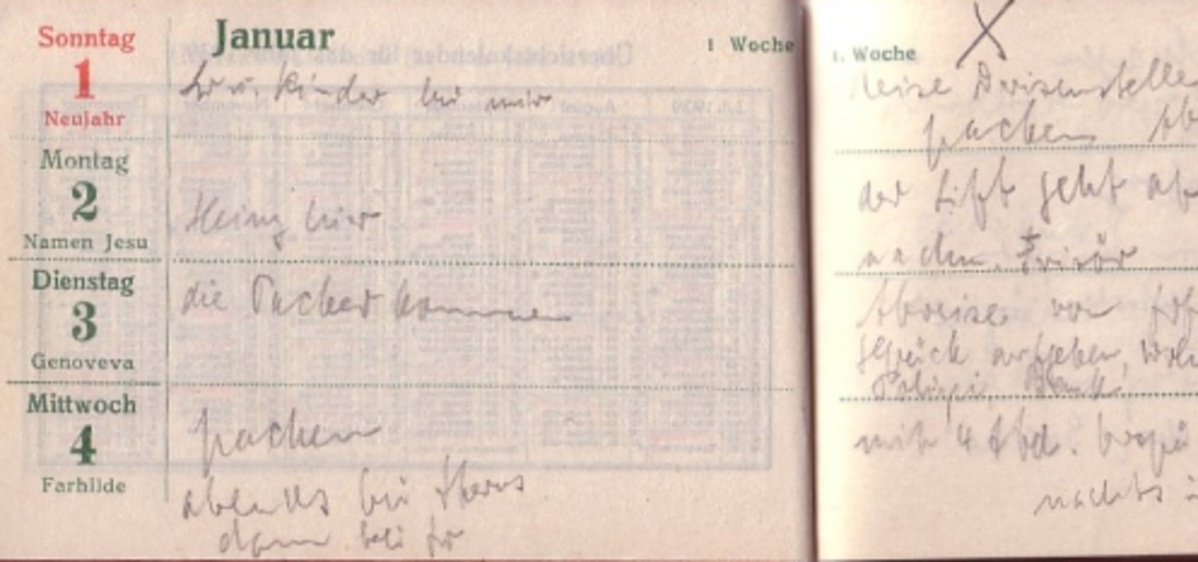 Sonntag
1
Neujahr
Januar
1 Woche
Kinder bei mir
Montag
2
Namen Jesu
Heinz hier
Dienstag
3
Genoveva
die Packer kommen
Mittwoch
4
Farhilde
packen
abends bei
dann bei
1. Woche
X
Devisenstelle
packen
der Lift geht ab
Frisör
Abreise von
Gepäck aufgeben,
Polizei, Bank.
mit 4
nachts